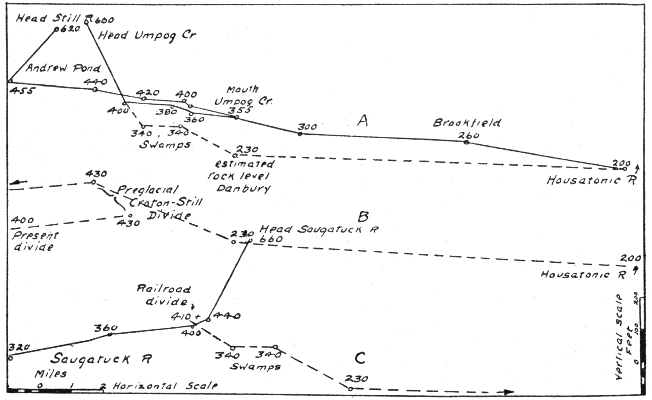 Head Still
600
620
Head Umpog Cr
Andrew Pond
455
440
420
400
Mouth
Umpog Cr.
355
400
380
360
340
340
Swamps
A
300
Brookfield
260
230
estimated
rock level
Danbury
200
Housatonic R
430
Preglacial
Croton-Still
Divide
430
400
Present
divide
B
230
Head Saugatuck R
660
200
Housatonic R
Railroad
divide
410+
400
440
360
320
Saugatuck R
340
340
Swamps
C
230
Miles
0 1 2 Horizontal Scale
Vertical Scale
Feet
0 100 200